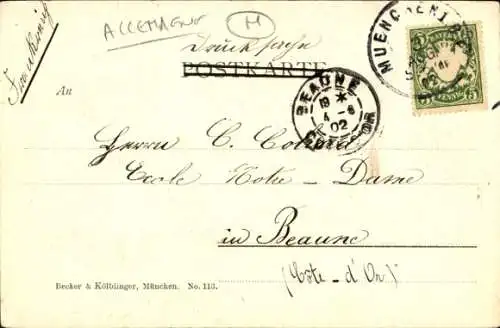 ALLEMAGNE
H
Drucksache
POSTKARTE
MUENCHEN
BAYERN
5 PFENNIG 5
BEAUNE
19 *
4 - 6
02
COTE D'OR
An
Herrn C.
Ecole Notre-Dame
in Beaune
(Côte-d'Or)
Becker & Kölblinger, München. No. 113.